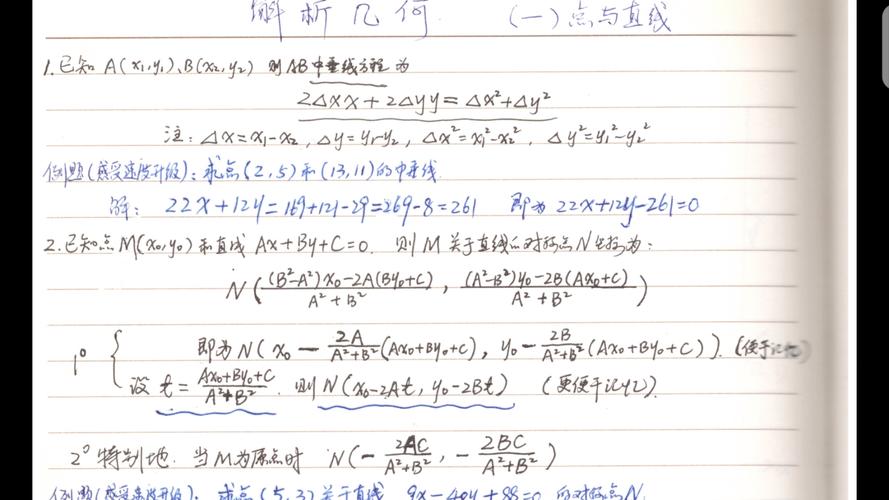 解析几何 (一)点与直线
1.已知 A(x₁,y₁)、B(x₂,y₂) 则AB中垂线方程为
2△x x + 2△y y = △x²+△y²
注:△x=x₁-x₂, △y=y₁-y₂, △x²=x₁²-x₂², △y²=y₁²-y₂²
例题(感受速度升级):求点(2,5)和(13,11)的中垂线.
解: 22x+12y=169+121-29=269-8=261 即为 22x+12y-261=0
2.已知点M(x₀,y₀)和直线 Ax+By+C=0. 则M关于直线的对称点N坐标为:
N((B²-A²)x₀-2A(By₀+C)/A²+B², (A²-B²)y₀-2B(Ax₀+C)/A²+B²)
1° { 即为N(x₀ - 2A/A²+B²(Ax₀+By₀+C), y₀- 2B/A²+B²(Ax₀+By₀+C)). (便于记忆)
设 t= Ax₀+By₀+C/A²+B². 则N(x₀-2At, y₀-2Bt) (更便于记忆).
2° 特别地. 当M为原点时 N(- 2AC/A²+B², - 2BC/A²+B²)
例题(感受速度升级): 求点(5,3)关于直线 9x-40y+88=0 的对称点N.